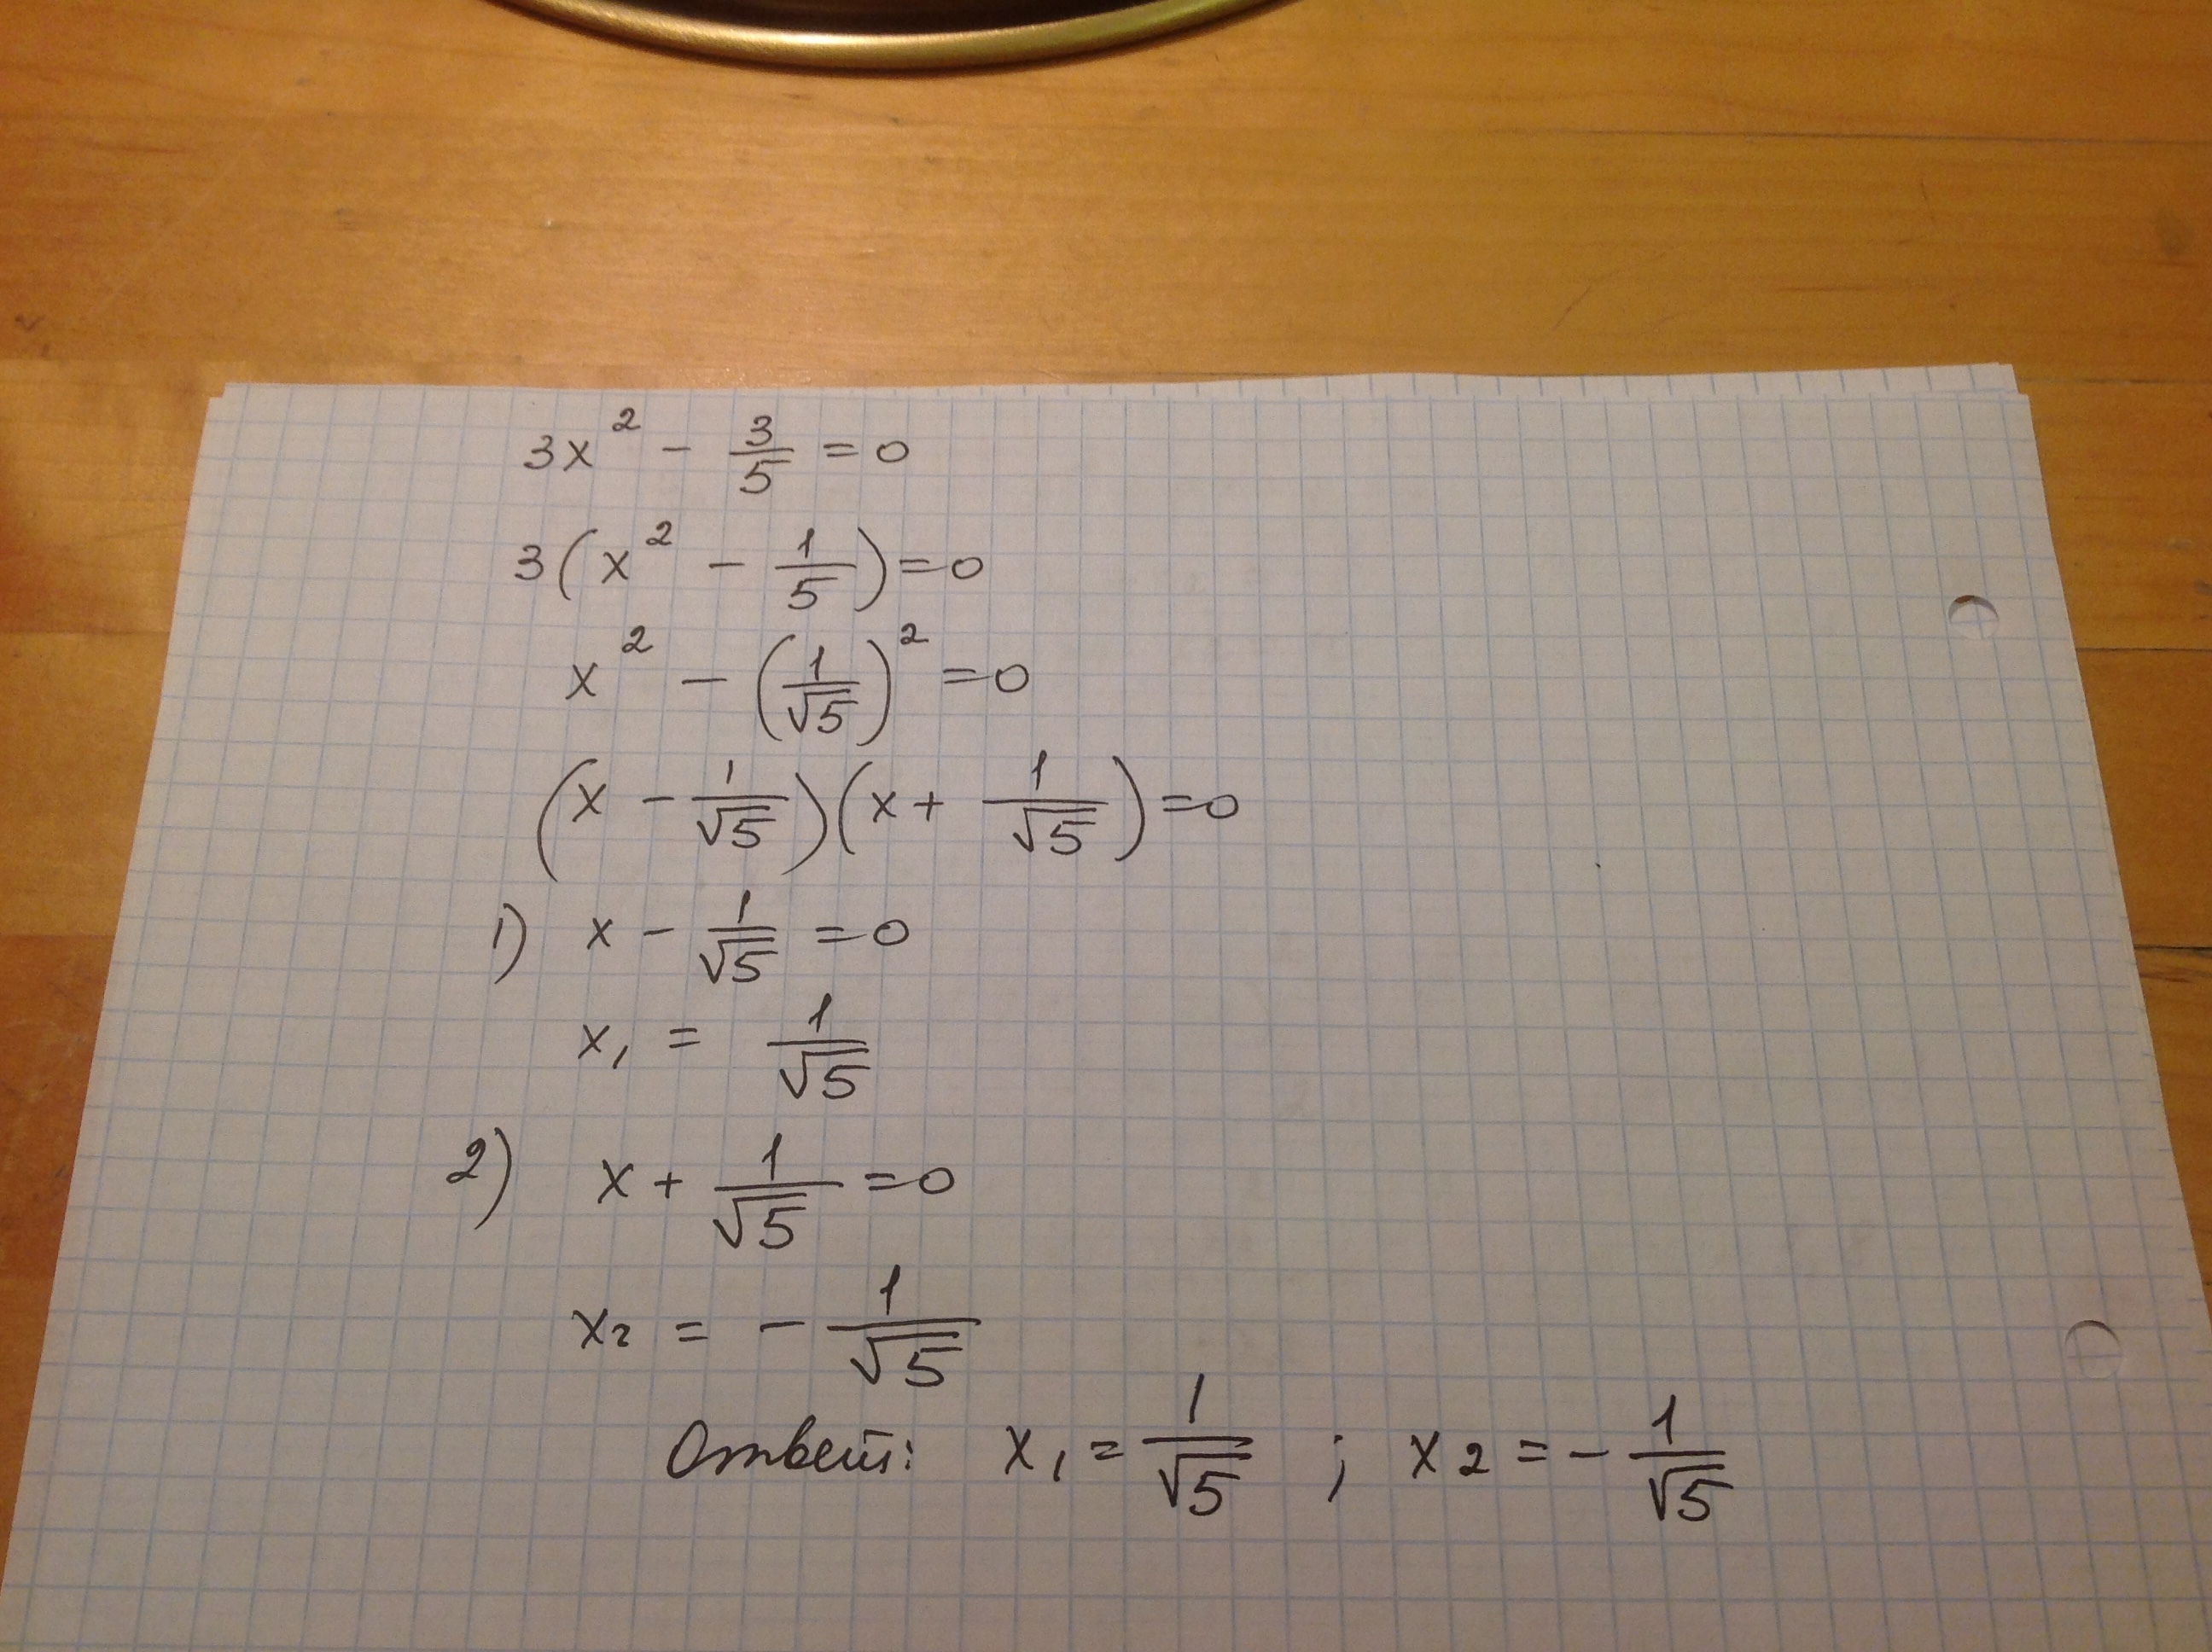 3x² - 3/5 = 0
3(x² - 1/5) = 0
x² - (1/√5)² = 0
(x - 1/√5)(x + 1/√5) = 0
1) x - 1/√5 = 0
x₁ = 1/√5
2) x + 1/√5 = 0
x₂ = - 1/√5
Ответ: x₁ = 1/√5 ; x₂ = - 1/√5